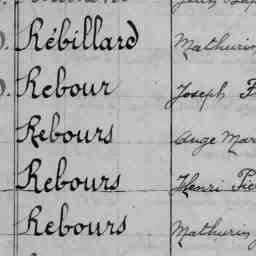 Rébillard Mathurin
Rebour Joseph F
Rebours Ange Mar
Rebours Henri Pie
Rebours Mathurin